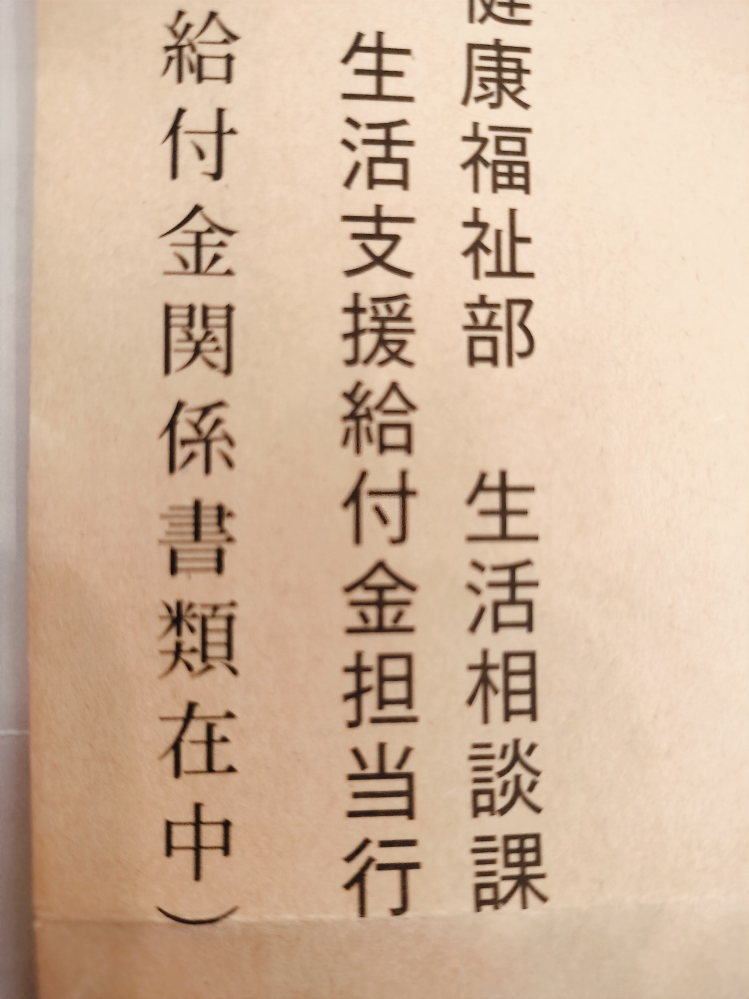 健康福祉部　生活相談課
生活支援給付金担当行
給付金関係書類在中）